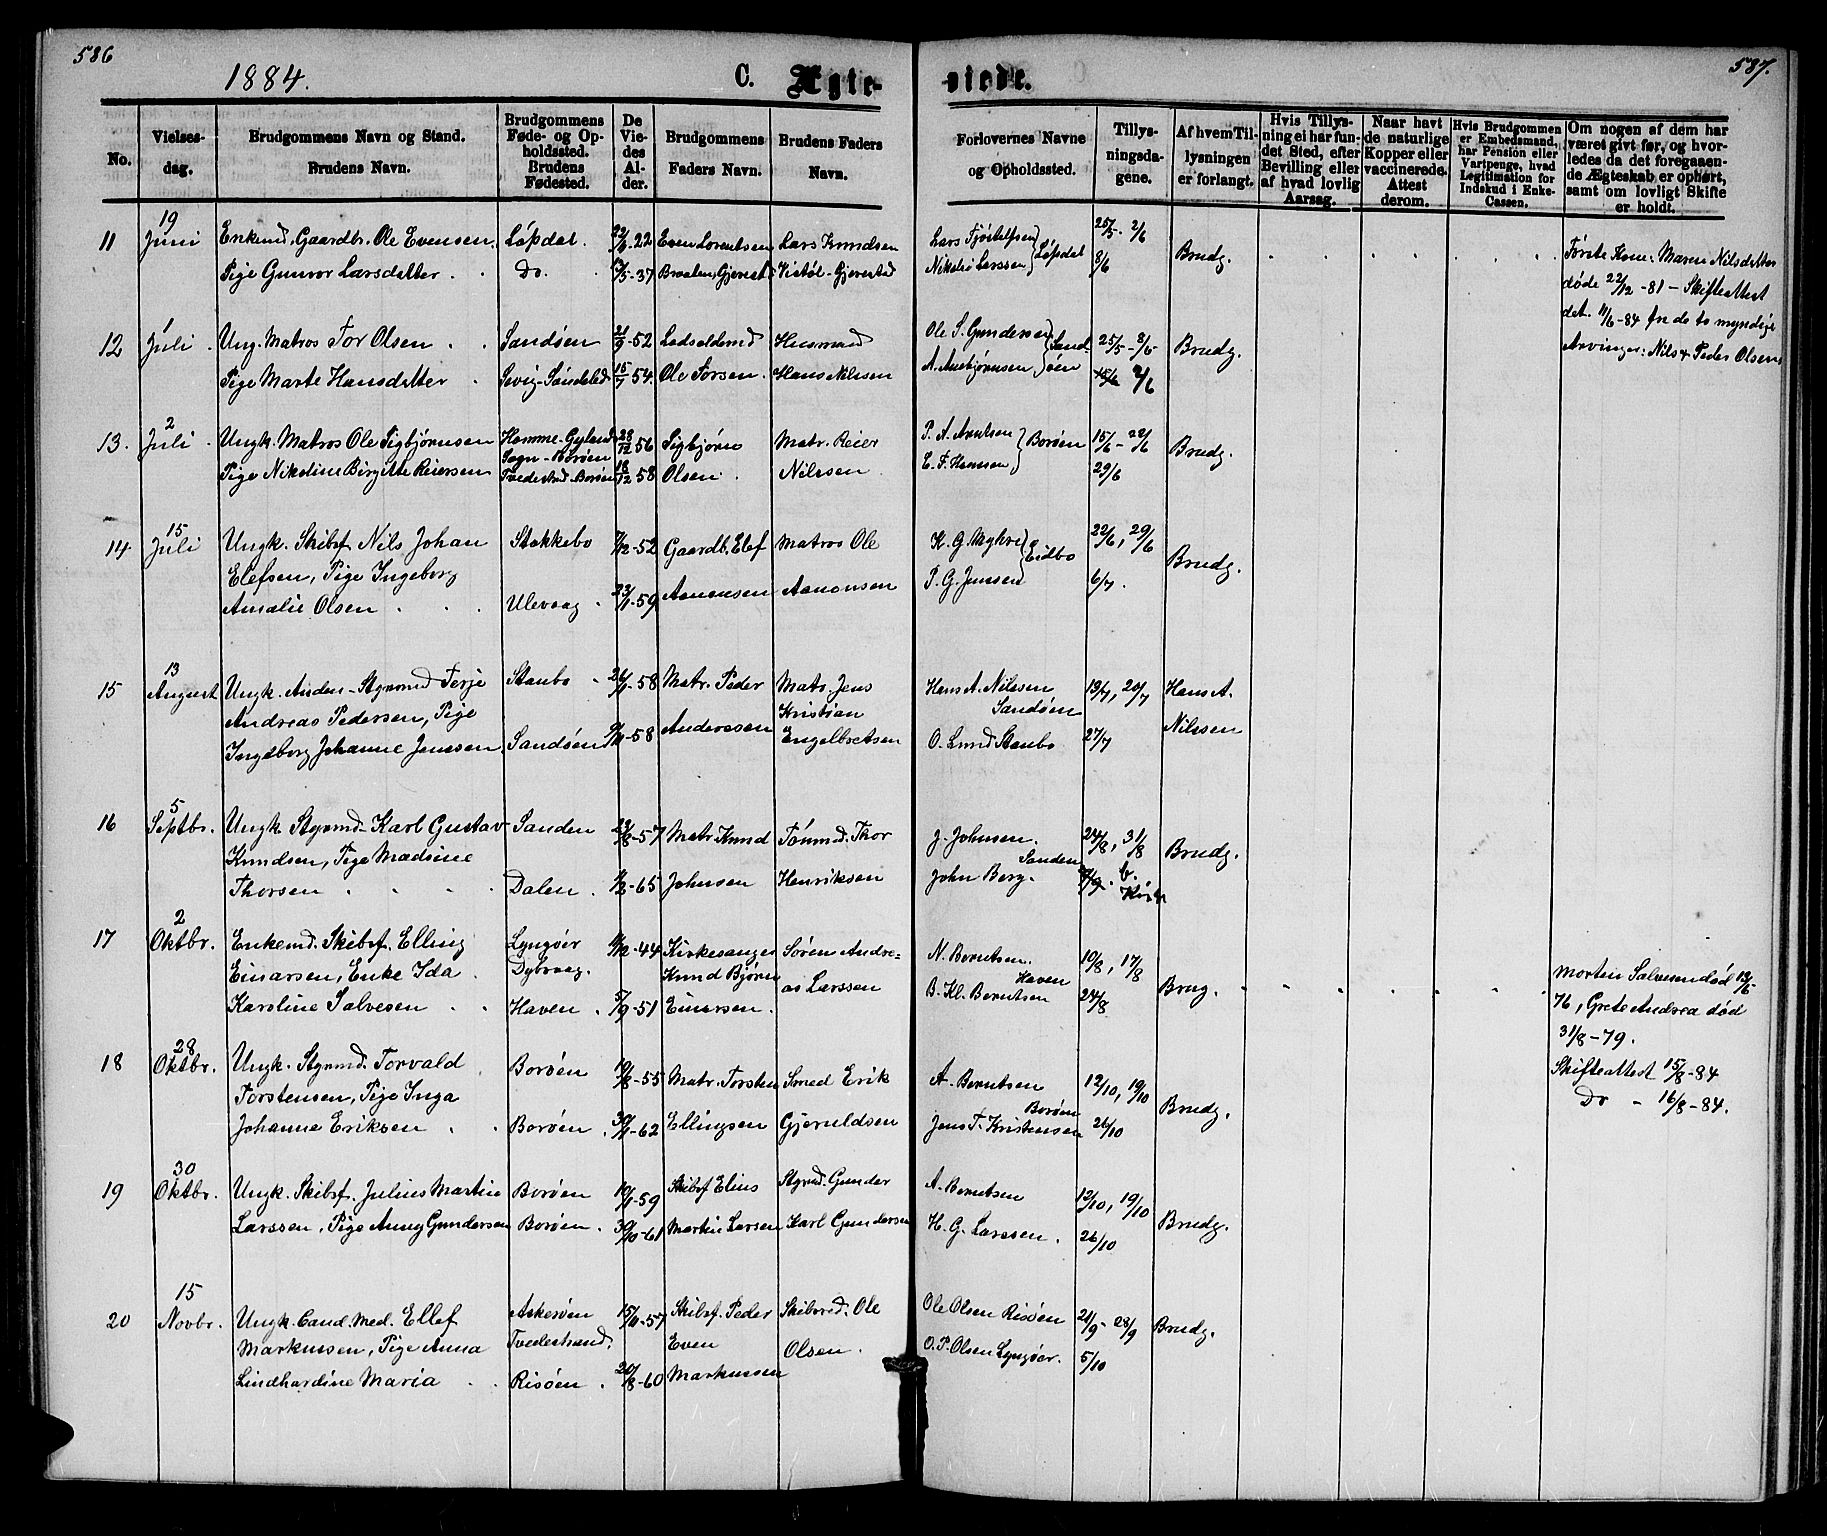 586
1884.
C. Ægte-
viede.
587.
No.
Vielses-
dag.
Brudgommens Navn og Stand.
Brudens Navn.
Brudgommens
Føde- og Op-
holdssted.
Brudens
Fødested.
De
Vie-
des
Al-
der.
Brudgommens
Faders Navn.
Brudens Faders
Navn.
Forlovernes Navne
og Opholdssted.
Tillys-
ningsda-
gene.
Af hvem Til-
lysningen
er forlangt.
Hvis Tillys-
ning ei har fun-
det Sted, efter
Bevilling eller
af hvad lovlig
Aarsag.
Naar havt
de naturlige
Kopper eller
vaccinerede.
Attest
derom.
Hvis Brudgommen
er Embedsmand,
har Pension eller
Vartpenge, hvad
Legitimation for
Indskud i Enke-
Cassen.
Om nogen af dem har
været givt før, og hvor-
ledes da det foregaaen-
de Ægteskab er ophørt,
samt om lovligt Skifte
er holdt.
11
19
Juni
Enkemd. Gaardbr. Ole Evensen
Pige Gunvor Larsdatter
Løpdal.
Do.
-22
-37
Even Lorentsen
Braaten, Gjerest.
Lars Knudsen
Vistøl - Gjerestad
Lars Fjøstelfsen
Nikolai Larssen
Løpdal
25/5. 2/6
8/6
Brudg.
Første Kone: Maren Nilsdatter
døde 22/12 -81 - Skifteattest
dat. 11/6 -84 fra de to myndige
Arvinger: Nils & Peder Olsen
12
1
Juli
Ung. Matros Tor Olsen
Pige Marte Hansdatter
Sandøen
Sevig-Søndeled
21/9 -52
15/7 54.
Ladsoldemd
Ole Torsen.
Husmand
Hans Nilssen
Ole S. Gundersen
A. Anebjørnsen
Sand-
øen
25/5 - 2/6
15/6
Brudg.
13.
2
Juli
Ungk. Matros Ole Sigbjørnsen
Pige Nikoline Birgitte Reiersen
Homme-Gyland
Sogn - Borøen
Tvedestrand-Borøen
28/12 56
18/12 58
Sigbjørn
Olsen.
Matr. Reier
Nilssen
P. A. Arntsen
E. F. Hansen
Borøen
15/6 - 22/6
29/6
Brudg.
14
15
Juli
Ungk. Skibsf. Nils Johan
Elefsen, Pige Ingeborg
Amalie Olsen
Stokkebo
Ulevaag
-52
-59
Gaardb. Elef
Aanonsen
Matros Ole
Aanonsen
K. G. Myhre
P. G. Jenssen
Eidbo
22/6, 29/6
6/7.
Brudg.
15
13
August
Ungk. Anden-Styrmd Terje
Andreas Pedersen, Pige
Ingeborg Johanne Jenssen
Staubo
Sandøen
-58
-58
Matr. Peder
Anderssen
Matr. Jens
Kristian
Engelbretsen
Hans A. Nilssen
Sandøen
O. Lund Staubo
13/7, 20/7
27/7
Hans A.
Nilssen
16
5
Septbr.
Ungk Styrmd. Karl Gustav
Knudsen, Pige Madsine
Thorsen
Sanden
Dalen
-57
-65
Matr Knud
Johnsen
Tømmd. Thor
Henriksen
J. Johnsen.
Sanden
John Berg.
24/8, 31/8
7/9.
Brudg.
17
2
Oktbr.
Enkemd. Skibsf. Elling
Einarsen, Enke Ida
Karoline Salvesen
Lyngøer
Dybvaag.
Haven
-44
5/9 -51
Kirkesanger
Knud Bjørn
Einersen.
Søren Andre-
as Larssen
N. Berntsen.
Haven
B. Kl. Berntsen
10/8, 17/8
24/8
Brug.
Morten Salvesen død 12/6-
76, Grete Andrea død
31/8 -79.
Skifteattest 15/8 -84
Do - 16/8 -84.
18
28
Oktbr.
Ungk. Styrmd. Torvald
Torstensen, Pige Inga
Johanne Eriksen
Borøen
Borøen
-55
-62
Matr. Torsten
Ellingsen
Smed Erik
Gjeruldsen
A. Berntsen
Borøen
Jens T. Kristensen
12/10, 19/10
26/10
Brudg.
19
30
Oktbr.
Ungk. Skibsf. Julius Martin
Larssen, Pige Anny Gundersen
Borøen
Borøen.
-59
30/10 -61
Skibsf Elius
Martin Larsen
Styrmd. Gunder
Karl Gundersen
A. Berntsen
H. G. Larssen.
12/10, 19/10
26/10
Brudg.
20
15
Novbr.
Ungk. Cand. Med. Ellef
Markussen, Pige Anna
Lindhardine Maria
Askerøen
Tvedestrand.
Risøen
15/11 -57
-60
Skibsf. Peder
Even
Markussen
Skibsred. Ole
Olsen.
Ole Olsen Risøen
O. P. Olsen Lyngøer.
21/9 - 28/9
5/10
Brudg.